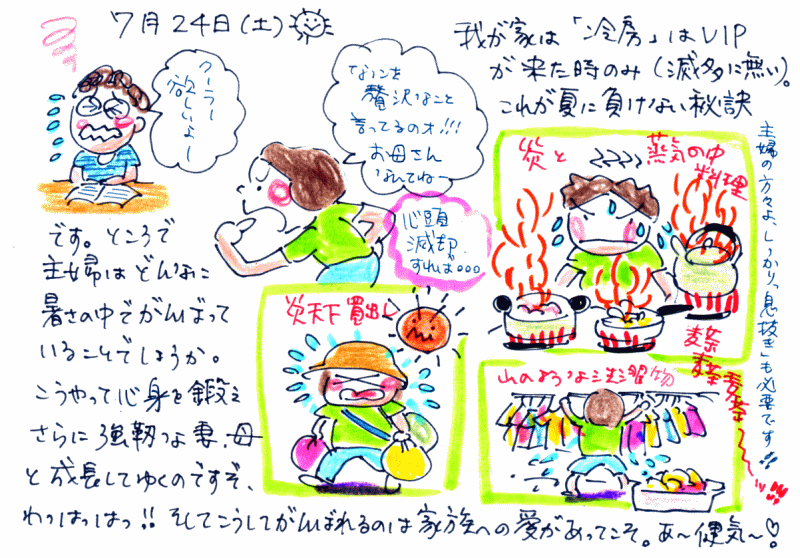 7月24日(土)
我が家は「冷房」はVIP
が来た時のみ(滅多に無い)。
これが夏に負けない秘訣
クーラー
欲しいよー
なにを
贅沢なこと
言ってるのオ!!!
お母さん
なんてねー
心頭
滅却
すれば。。。
です。ところで
主婦はどんなに
暑さの中でがんばって
いることでしょうか。
こうやって心身を鍛え
さらに強靭な妻、母
と成長してゆくのですぞ、
わっはっはっ!!そしてこうしてがんばれるのは家族への愛があってこそ。あ〜健気〜♡
炎天下買出し
炎と
蒸気の中
料理
山のような洗濯物
主婦の方々よ、しっかり、「息抜き」も必要です!!